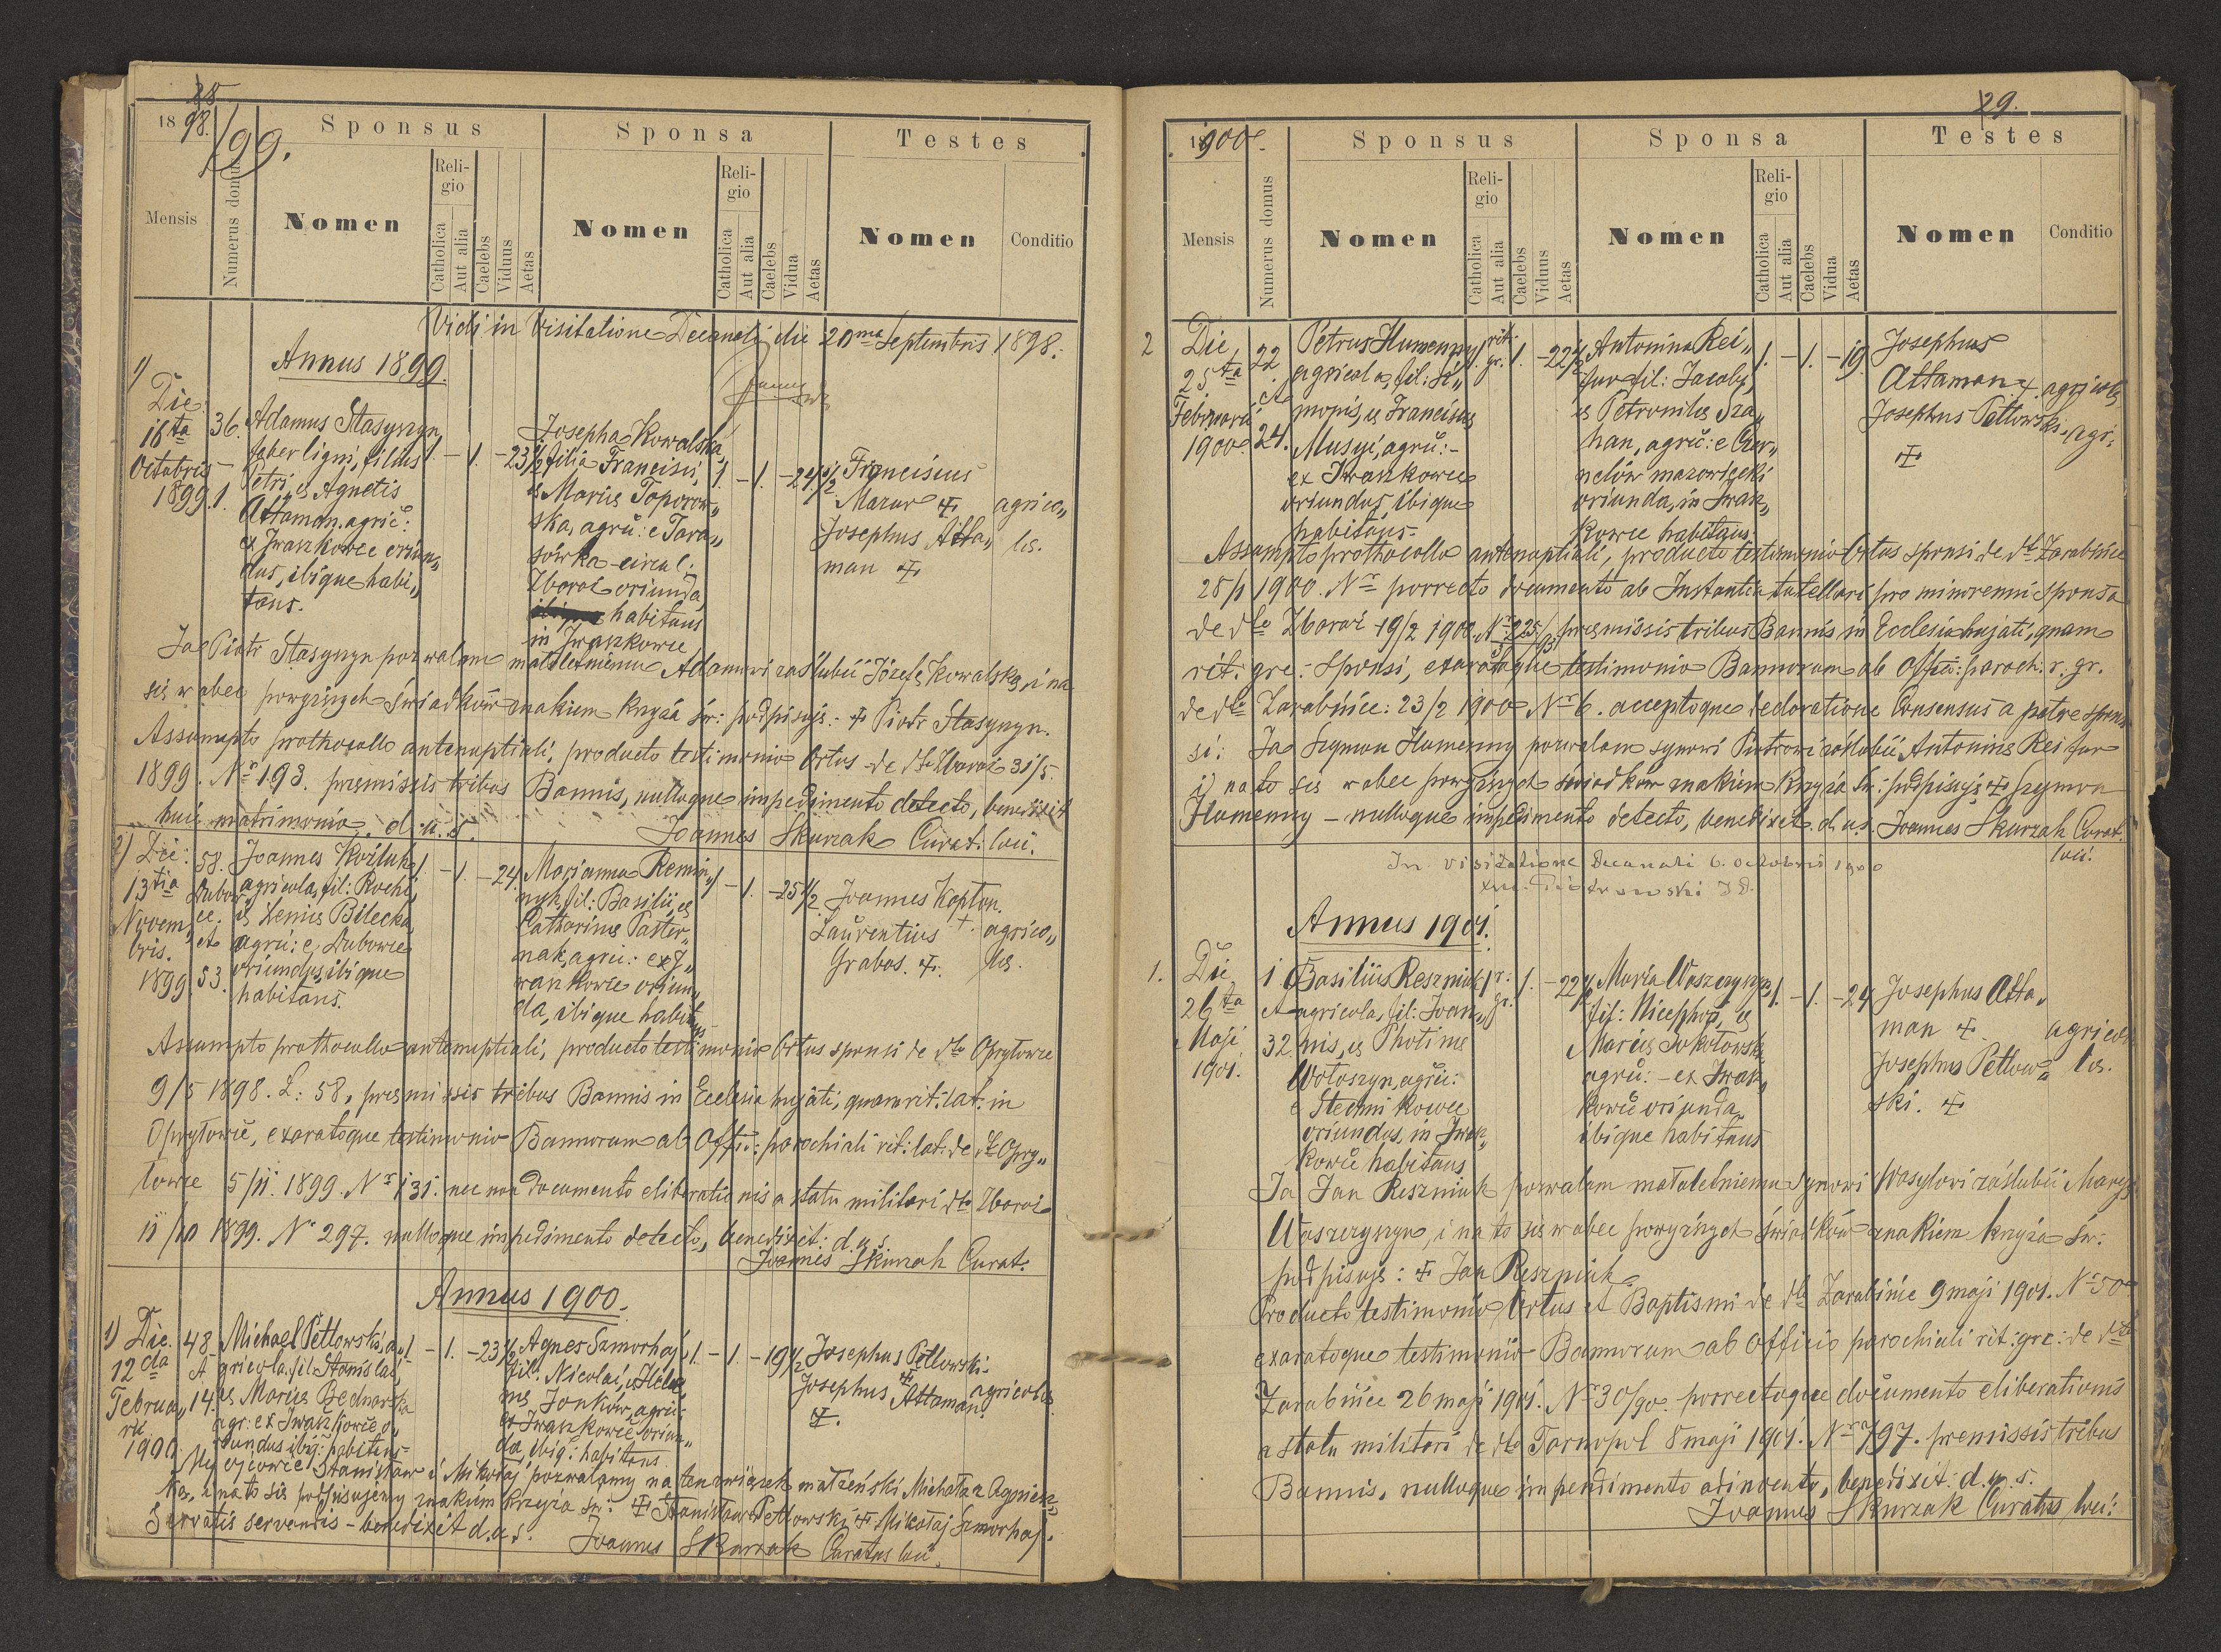 28
1898./99.
Sponsus
Sponsa
Testes
Mensis
Numerus domus
Nomen
Religio
Catholica
Aut alia
Caelebs
Viduus
Aetas
Nomen
Religio
Catholica
Aut alia
Caelebs
Vidua
Aetas
Nomen
Conditio
Vidi in Visitatione Decanali die 20ma Septembris 1898.
Annus 1899.
1)
Die
16ta
Octobris
1899.
36.
1.
Adamus Stasyszyn
faber ligni, filius
Petri, et Agnetis
Attaman. agric:
ex Iwaszkowce oriun„
dus, ibique habi„
tans.
1. – 1. – 23 1/2
Josepha Kowalska,
filia Francisci,
et Mariæ Toporow„
ska, agric: e Tara„
sówka circul:
Zbaraż oriunda,
habitans
in Iwaszkowce
1. – 1. – 24 1/2
Franciscus
Mazur +
Josephus Atta„
man +
agrico„
læ.
Ja Piotr Stasyszyn pozwalam małoletniemu Adamowi zaślubić Józefę Kowalską, i na
się wobec powyższych świadków znakiem krzyża św: podpisuję. + Piotr Stasyszyn.
Assumpto prothocollo antenuptiali, producto testimonio Ortus de dto Zbaraż 31/5.
1899. Nr 193. præmissis tribus Bannis, nulloque impedimento detecto, benedixit
huic matrimonio. d. u. s.
Joannes Skurzak Curat: loci.
2)
Die:
13tia
Novem„
bris.
1899
58.
Dubow
ce.
et
53.
Joannes Koźluk
agricola, fil: Rochi,
et Xeniæ Bilecka
agric: e Dubowce
oriundus, ibique
habitans.
1. – 1. – 24.
Marianna Remi„
nyk, fil: Basilii, et
Catharinæ Paster„
nak, agric: ex I„
waszkowce oriun„
da, ibique habitans
1 – 1. – 25 1/2
Joannes Kapton.
Laurentius +.
Grabas. +.
agrico„
læ.
Assumpto prothocollo antenuptiali, producto testimonio Ortus sponsi de dto Opryłowce
9/5 1898. L: 58, præmissis tribus Bannis in Ecclesia hujati, quam rit: lat: in
Opryłowce, exaratoque testimonio Bannorum ab Offic: parochiali rit: lat: de dto Opry„
łowce 5/11. 1899. Nr 131. nec non documento eliberationis a statu militari dto Zbaraż
11/10 1899. Nr 297. nulloque impedimento detecto, benedixit: d. u. s.
Joannes Skurzak Curat:
Annus 1900.
1)
Die.
12da
Februa„
rii
1900.
48.
et
14.
Michael Petlowski, a„
gricola, fil: Stanislai,
et Mariæ Bednarska
agr: ex Iwaszkowce o„
riundus ibiq: habitans
1 – 1. – 23 1/2
Agnes Samorhaj,
fil: Nicolai, et Hele„
næ Jonków, agric:
ex Iwaszkowce oriun„
da, ibiq: habitans.
1. – 1. – 19 1/2
Josephus Petlowski
+
Josephus Attaman.
+.
agricolæ
My ojcowie Stanisław i Mikołaj pozwalamy na ten związek małżeński Michała z Agniesz„
ką, i na to się podpisujemy znakiem krzyża św: + Stanisław Petlowski + Mikołaj Samorhaj.
Servatis servandis – benedixit d. u. s.
Joannes Skurzak Curatus loci.
29.
1900.
Sponsus
Sponsa
Testes
Mensis
Numerus domus
Nomen
Religio
Catholica
Aut alia
Caelebs
Viduus
Aetas
Nomen
Religio
Catholica
Aut alia
Caelebs
Vidua
Aetas
Nomen
Conditio
2
Die
25ta
Februarii
1900.
22
et
24.
Petrus Humenny
agricola, fil: Si„
monis, et Franciscæ
Musyi, agric: –
ex Iwaszkowce
oriundus, ibique
habitans –
rit:
gr. 1. – 22 1/2
Antonina Rei„
fur fil: Jacobi,
et Petronilæ Sza„
man, agric: e Czer„
nelów mazowiecki
oriunda, in Iwasz„
kowce habitans.
1. – 1. – 19
Josephus
Attaman +.
Josephus Petlowski
+
agricola
agr:
Assumpto prothocollo antenuptiali, producto testimonio Ortus sponsi de dto Zarubińce
28/1 1900. Nr porrecto documento ab Instantia tutellari pro minorenni sponsa
de dto Zbaraż 19/2 1900. Nr 225/ præmissis tribus Bannis in Ecclesia hujati, quam
rit: gre: Sponsi, exaratoque testimonio Bannorum ab Offic: paroch: r. gr.
de dto Zarubińce: 23/2 1900 Nr 6. acceptoque declaratione Consensus a patre spon„
si: Ja Szymon Humenny pozwalam synowi Piotrowi zaślubić Antoninę Rei fur
i na to się wobec powyższych świadków znakiem krzyża św: podpisuję + Szymon
Humenny – nulloque impedimento detecto, benedixit d. u. s. Joannes Skurzak Curat.
loci.
In visitatione decanali 6. octobris 1900
Annus 1901.
1.
Die
26ta
Maji
1901.
1
et
32
Basilius Reszniuk
agricola, fil: Joan„
nis, et Photinæ
Wołoszyn, agric:
e Stechnikowce
oriundus, in Iwasz„
kowce habitans
r:
gr. 1. – 22 1/2
Maria Waszczyszyn
fil: Nicephori, et
Mariæ Sokołowska
agric: – ex Iwasz„
kowce oriunda,
ibique habitans
1. – 1. – 24
Josephus Atta„
man +.
Josephus Petlow„
ski. +
agrico„
læ.
Ja Jan Reszniuk pozwalam małoletniemu synowi Wasylowi zaślubić Maryę
Waszczyszyn, i na to się wobec powyższych świadków znakiem krzyża św:
podpisuję: + Jan Reszniuk.
Producto testimonio Ortus et Baptismi de dto Zarubińce 9 maji 1901. Nr 50
exaratoque testimonio Bannorum ab Officio parochiali rit: gre: de dto
Zarubińce 26 maji 1901. Nr 30/90. porrectoque documento eliberationis
a statu militari de dto Tarnopol 8 maji 1901. Nr 797. premissis tribus
Bannis, nulloque impendimento adinvento, benedixit: d. u. s.
Joannes Skurzak Curatus loci: